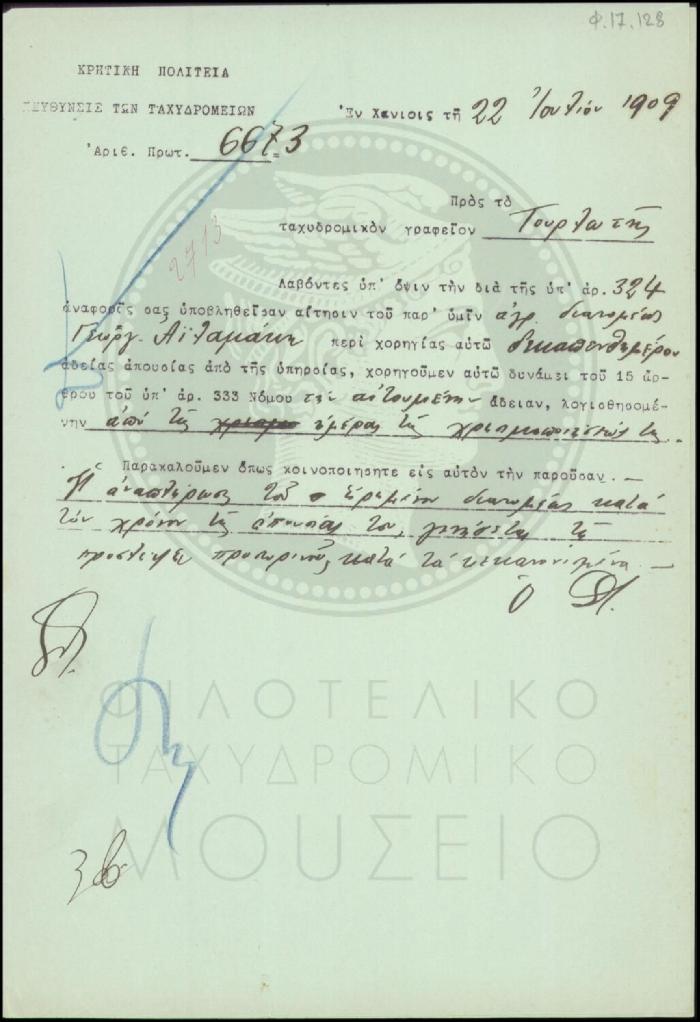 Φ.17.128
ΚΡΗΤΙΚΗ ΠΟΛΙΤΕΙΑ
ΙΕΥΘΥΝΣΙΣ ΤΩΝ ΤΑΧΥΔΡΟΜΕΙΩΝ
Ἐν Χανίοις τῇ 22 Ἰουλίου 1909
Ἀριθ. Πρωτ. 6673
Πρὸς τὸ
ταχυδρομικὸν γραφεῖον Τουρλωτῆς
2713
Λαβόντες ὑπ' ὄψιν τὴν διὰ τῆς ὑπ' ἀρ. 324
ἀναφορᾶς σας ὑποβληθεῖσαν αἴτησιν τοῦ παρ' ὑμῖν ἀγρ. διανομέως
Γεώργ. Ἀϊλαμάκη περὶ χορηγίας αὐτῷ δεκαπενθημέρου
ἀδείας ἀπουσίας ἀπὸ τῆς ὑπηρσίας, χορηγοῦμεν αὐτῷ δυνάμει τοῦ 15 ἄρ-
θρου τοῦ ὑπ' ἀρ. 333 Νόμου τὴν αἰτουμένην ἄδειαν, λογισθησομέ-
νην ἀπὸ τῆς ἡμέρας τῆς χρησιμοποιήσεώς της
Παρακαλοῦμεν ὅπως κοινοποιήσητε εἰς αὐτὸν τὴν παροῦσαν.—
Ἡ ἀναπλήρωσις τοῦ εἰρημένου διανομέως κατὰ
τὸν χρόνον τῆς ἀπουσίας του, γενήσεται τῇ
προσλήψει προσωρινοῦ, κατὰ τὰ κεκανονισμένα.—
Ὁ
ΦΙΛΟΤΕΛΙΚΟ
ΤΑΧΥΔΡΟΜΙΚΟ
ΜΟΥΣΕΙΟ